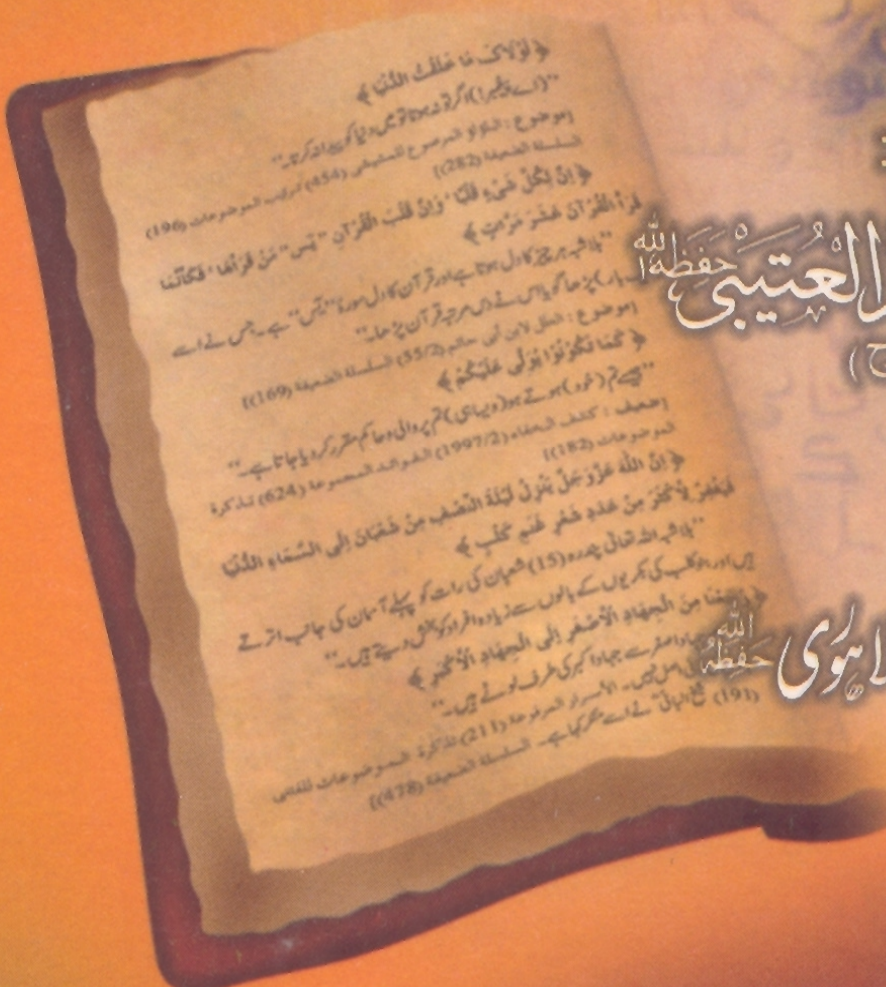 ﴿ لَوْلَاكَ مَا خَلَقْتُ الدُّنْيَا ﴾
"(اے پیغمبر!) اگر تو نہ ہوتا تو میں دنیا کو پیدا نہ کرتا۔"
[موضوع : اللؤلؤ المرصوع للمشيشى (454) ترتيب الموضوعات (196)
السلسلة الضعيفة (282)]
﴿ اِنَّ لِكُلِّ شَىْءٍ قَلْبًا ' وَاِنَّ قَلْبَ الْقُرْآنِ "يٰسٓ" مَنْ قَرَأَهَا ' فَكَأَنَّمَا
قَرَأَ الْقُرْآنَ عَشَرَ مَرَّاتٍ ﴾
"بلاشبہ ہر چیز کا دل ہوتا ہے اور قرآن کا دل سورۂ "یٰسٓ" ہے۔ جس نے اسے
پڑھا گویا اس نے دس مرتبہ قرآن پڑھا۔"
[موضوع : العلل لابن أبى حاتم (55/2) السلسلة الضعيفة (169)]
﴿ كَمَا تَكُوْنُوْا يُوَلّٰى عَلَيْكُمْ ﴾
"جیسے تم (خود) ہوتے ہو (ویسا ہی) تم پر والی و حاکم مقرر کر دیا جاتا ہے۔"
[ضعيف : كشف الخفاء (1997/2) الفوائد المجموعة (624) تذكرة
الموضوعات (182)]
﴿ اِنَّ اللّٰهَ عَزَّوَجَلَّ يَنْزِلُ لَيْلَةَ النِّصْفِ مِنْ شَعْبَانَ اِلَى السَّمَاءِ الدُّنْيَا
فَيَغْفِرُ لِأَكْثَرَ مِنْ عَدَدِ شَعْرِ غَنَمِ كَلْبٍ ﴾
"بلاشبہ اللہ تعالیٰ پندرہ (15) شعبان کی رات کو پہلے آسمان کی جانب اترتے
ہیں اور بنو کلب کی بکریوں کے بالوں سے زیادہ افراد کو بخش دیتے ہیں۔"
مِنَ الْجِهَادِ الْأَصْغَرِ اِلَى الْجِهَادِ الْأَكْبَرِ ﴾
جہاد اصغر سے جہاد اکبر کی طرف لوٹے ہیں۔"
اصل نہیں۔ الأسرار المرفوعة (211) تذكرة الموضوعات للفتنى
(191) شیخ البانیؒ نے اسے منکر کہا ہے۔ السلسلة الضعيفة (478)]
العُتَيْبَىْ حَفِظَهُ اللّٰه
لاہوری حَفِظَهُ اللّٰه